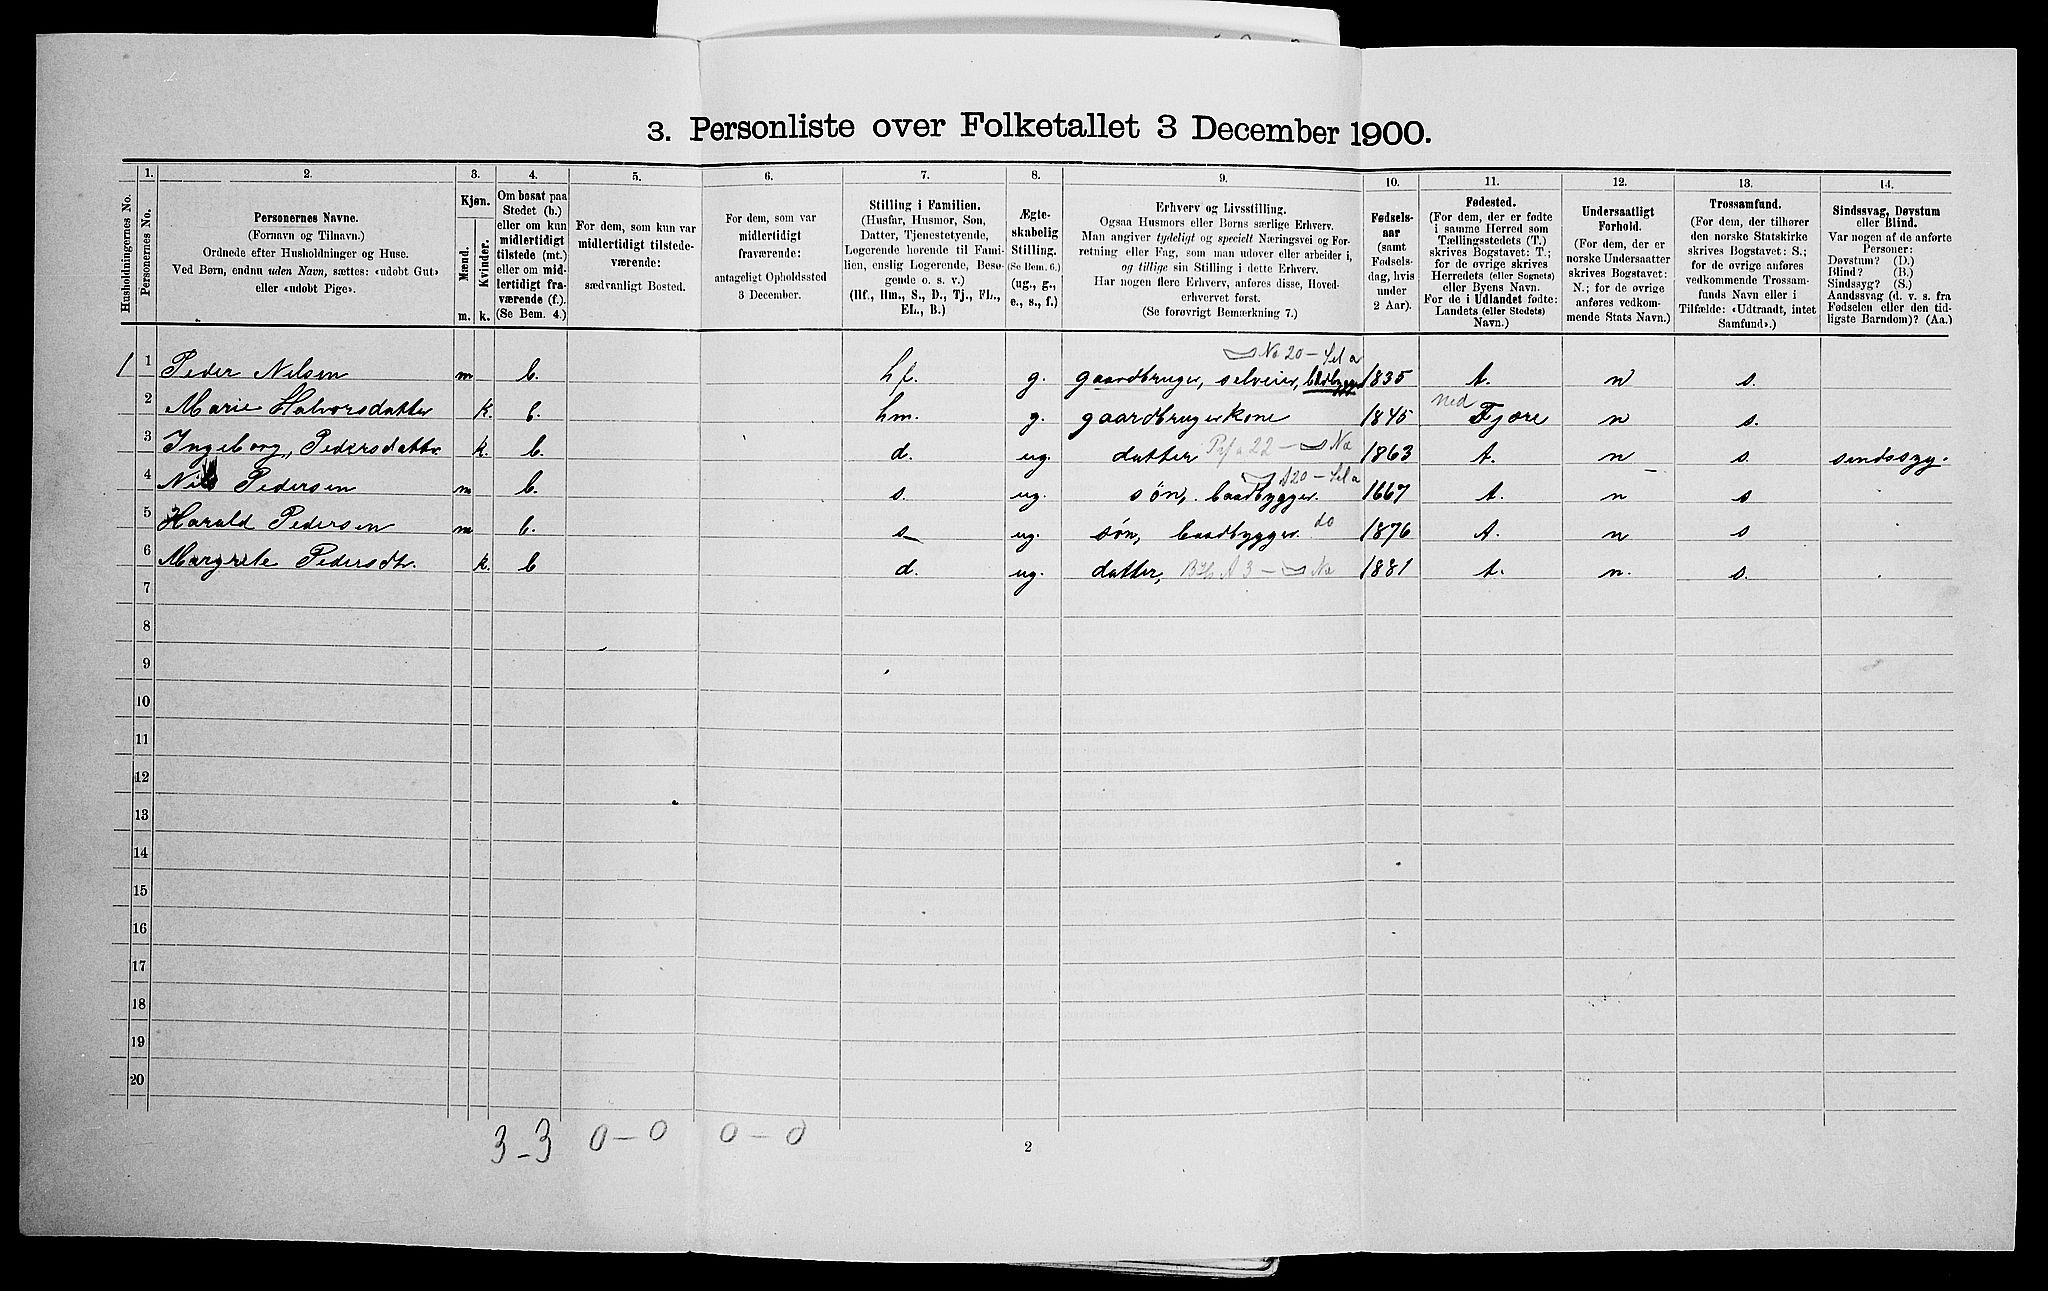 3. Personliste over Folketallet 3 December 1900.
Husholdningernes No.
1.
Personernes No.
2.
Personernes Navne.
(Fornavn og Tilnavn.)
Ordnede efter Husholdninger og Huse.
Ved Børn, endnu uden Navn, sættes: «udobt Gut»
eller «udobt Pige».
3.
Kjøn.
Mænd.
Kvinder.
m. k.
4.
Om bosat paa
Stedet (b.)
eller om kun
midlertidigt
tilstede (mt.)
eller om mid-
lertidigt fra-
værende (f.).
(Se Bem. 4.)
5.
For dem, som kun var
midlertidigt tilstede-
værende:
sædvanligt Bosted.
6.
For dem, som var
midlertidigt
fraværende:
antageligt Opholdssted
3 December.
7.
Stilling i Familien.
(Husfar, Husmor, Søn,
Datter, Tjenestetyende,
Logerende horende til Fami-
lien, enslig Logerende, Besø-
gende o. s. v.)
(Hf., Hm., S., D., Tj., FL.,
EL., B.)
8.
Ægte-
skabelig
Stilling.
(Se Bem. 6.)
(ug., g.,
e., s., f.)
9.
Erhverv og Livsstilling.
Ogsaa Husmors eller Børns særlige Erhverv.
Man angiver tydeligt og specielt Næringsvei og For-
retning eller Fag, som man udover eller arbeider i,
og tillige sin Stilling i dette Erhverv.
Har nogen flere Erhverv, anføres disse, Hoved-
erhvervet først.
(Se forøvrigt Bemærkning 7.)
10.
Fødsels-
aar
(samt
Fødsels-
dag, hvis
under
2 Aar).
11.
Fødested.
(For dem, der er fødte
i samme Herred som
Tællingsstedets (T.)
skrives Bogstavet: T.;
for de øvrige skrives
Herredets (eller Sognets)
eller Byens Navn.
For de i Udlandet fødte:
Landets (eller Stedets)
Navn.)
12.
Undersaatligt
Forhold.
(For dem, der er
norske Undersaatter
skrives Bogstavet:
N.; for de øvrige
anføres vedkom-
mende Stats Navn.)
13.
Trossamfund.
(For dem, der tilhører
den norske Statskirke
skrives Bogstavet: S.;
for de øvrige anføres
vedkommende Trossam-
funds Navn eller i
Tilfælde: «Udtraadt, intet
Samfund».)
14.
Sindssvag, Døvstum
eller Blind.
Var nogen af de anførte
Personer:
Døvstum? (D.)
Blind? (B.)
Sindssyg? (S.)
Aandssvag (d. v. s. fra
Fødselen eller den tid-
ligste Barndom)? (Aa.)
No 20 – Sela
1 1 Peder Nilsen m b. hf. g. gaardbruger, selveier, baadbygger 1835 t. n s.
2 Marie Halvorsdatter k. b. hm. g. gaardbrugerkone 1845 ned Fjære n s.
3 Ingeborg, Pedersdatter k. b. d. ug. datter 22 – No 1863 t. n s. sindssyg.
20 – Sela
4 Nils Pedersen m b. s. ug. søn, baadbygger. 1667 t. n s
5 Harald Pedersen m b. s ug. søn, baadbygger. do 1876 t. n s
6 Margrete Pedersdtr. k. b d. ug. datter, A 3 – No 1881 t. n. s.
7
8
9
10
11
12
13
14
15
16
17
18
19
20
3 – 3 0 – 0 0 – 0
2